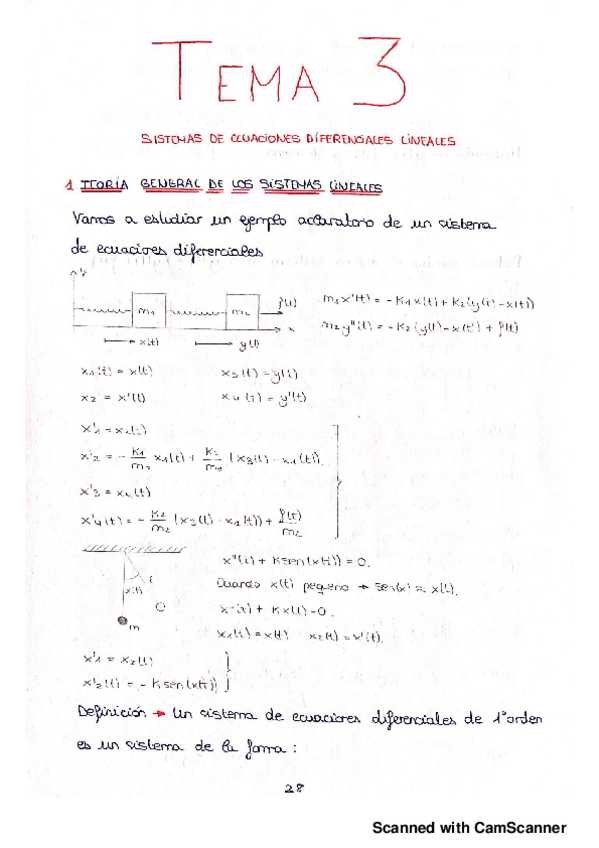 TEMA 3
SISTEMAS DE ECUACIONES DIFERENCIALES LINEALES
1 TEORÍA GENERAL DE LOS SISTEMAS LINEALES
Vamos a estudiar un ejemplo de un sistema
de ecuaciones diferenciales
y
m1 m2 f(t)
x
x(t) y(t)
m1x''(t) = -K1x(t) + K2(y(t)-x(t))
m2y''(t) = -K2(y(t)-x(t)) + f(t)
x1(t) = x(t) x3(t) = y(t)
x2 = x'(t) x4(t) = y'(t)
x'1 = x2(t)
x'2 = - K1/m1 x1(t) + K2/m1 (x3(t) - x1(t))
x'3 = x4(t)
x'4(t) = - K2/m2 (x3(t) - x1(t)) + f(t)/m2
x(t)
m
x''(t) + K sen(x(t)) = 0.
Cuando x(t) pequeño → sen(x) ≈ x(t).
x''(t) + Kx(t) = 0.
x1(t) = x(t) x2(t) = x'(t).
x'1 = x2(t)
x'2(t) = - K sen(x(t))
Definición → Un sistema de ecuaciones diferenciales de 1º orden
es un sistema de la forma :
28
Scanned with CamScanner